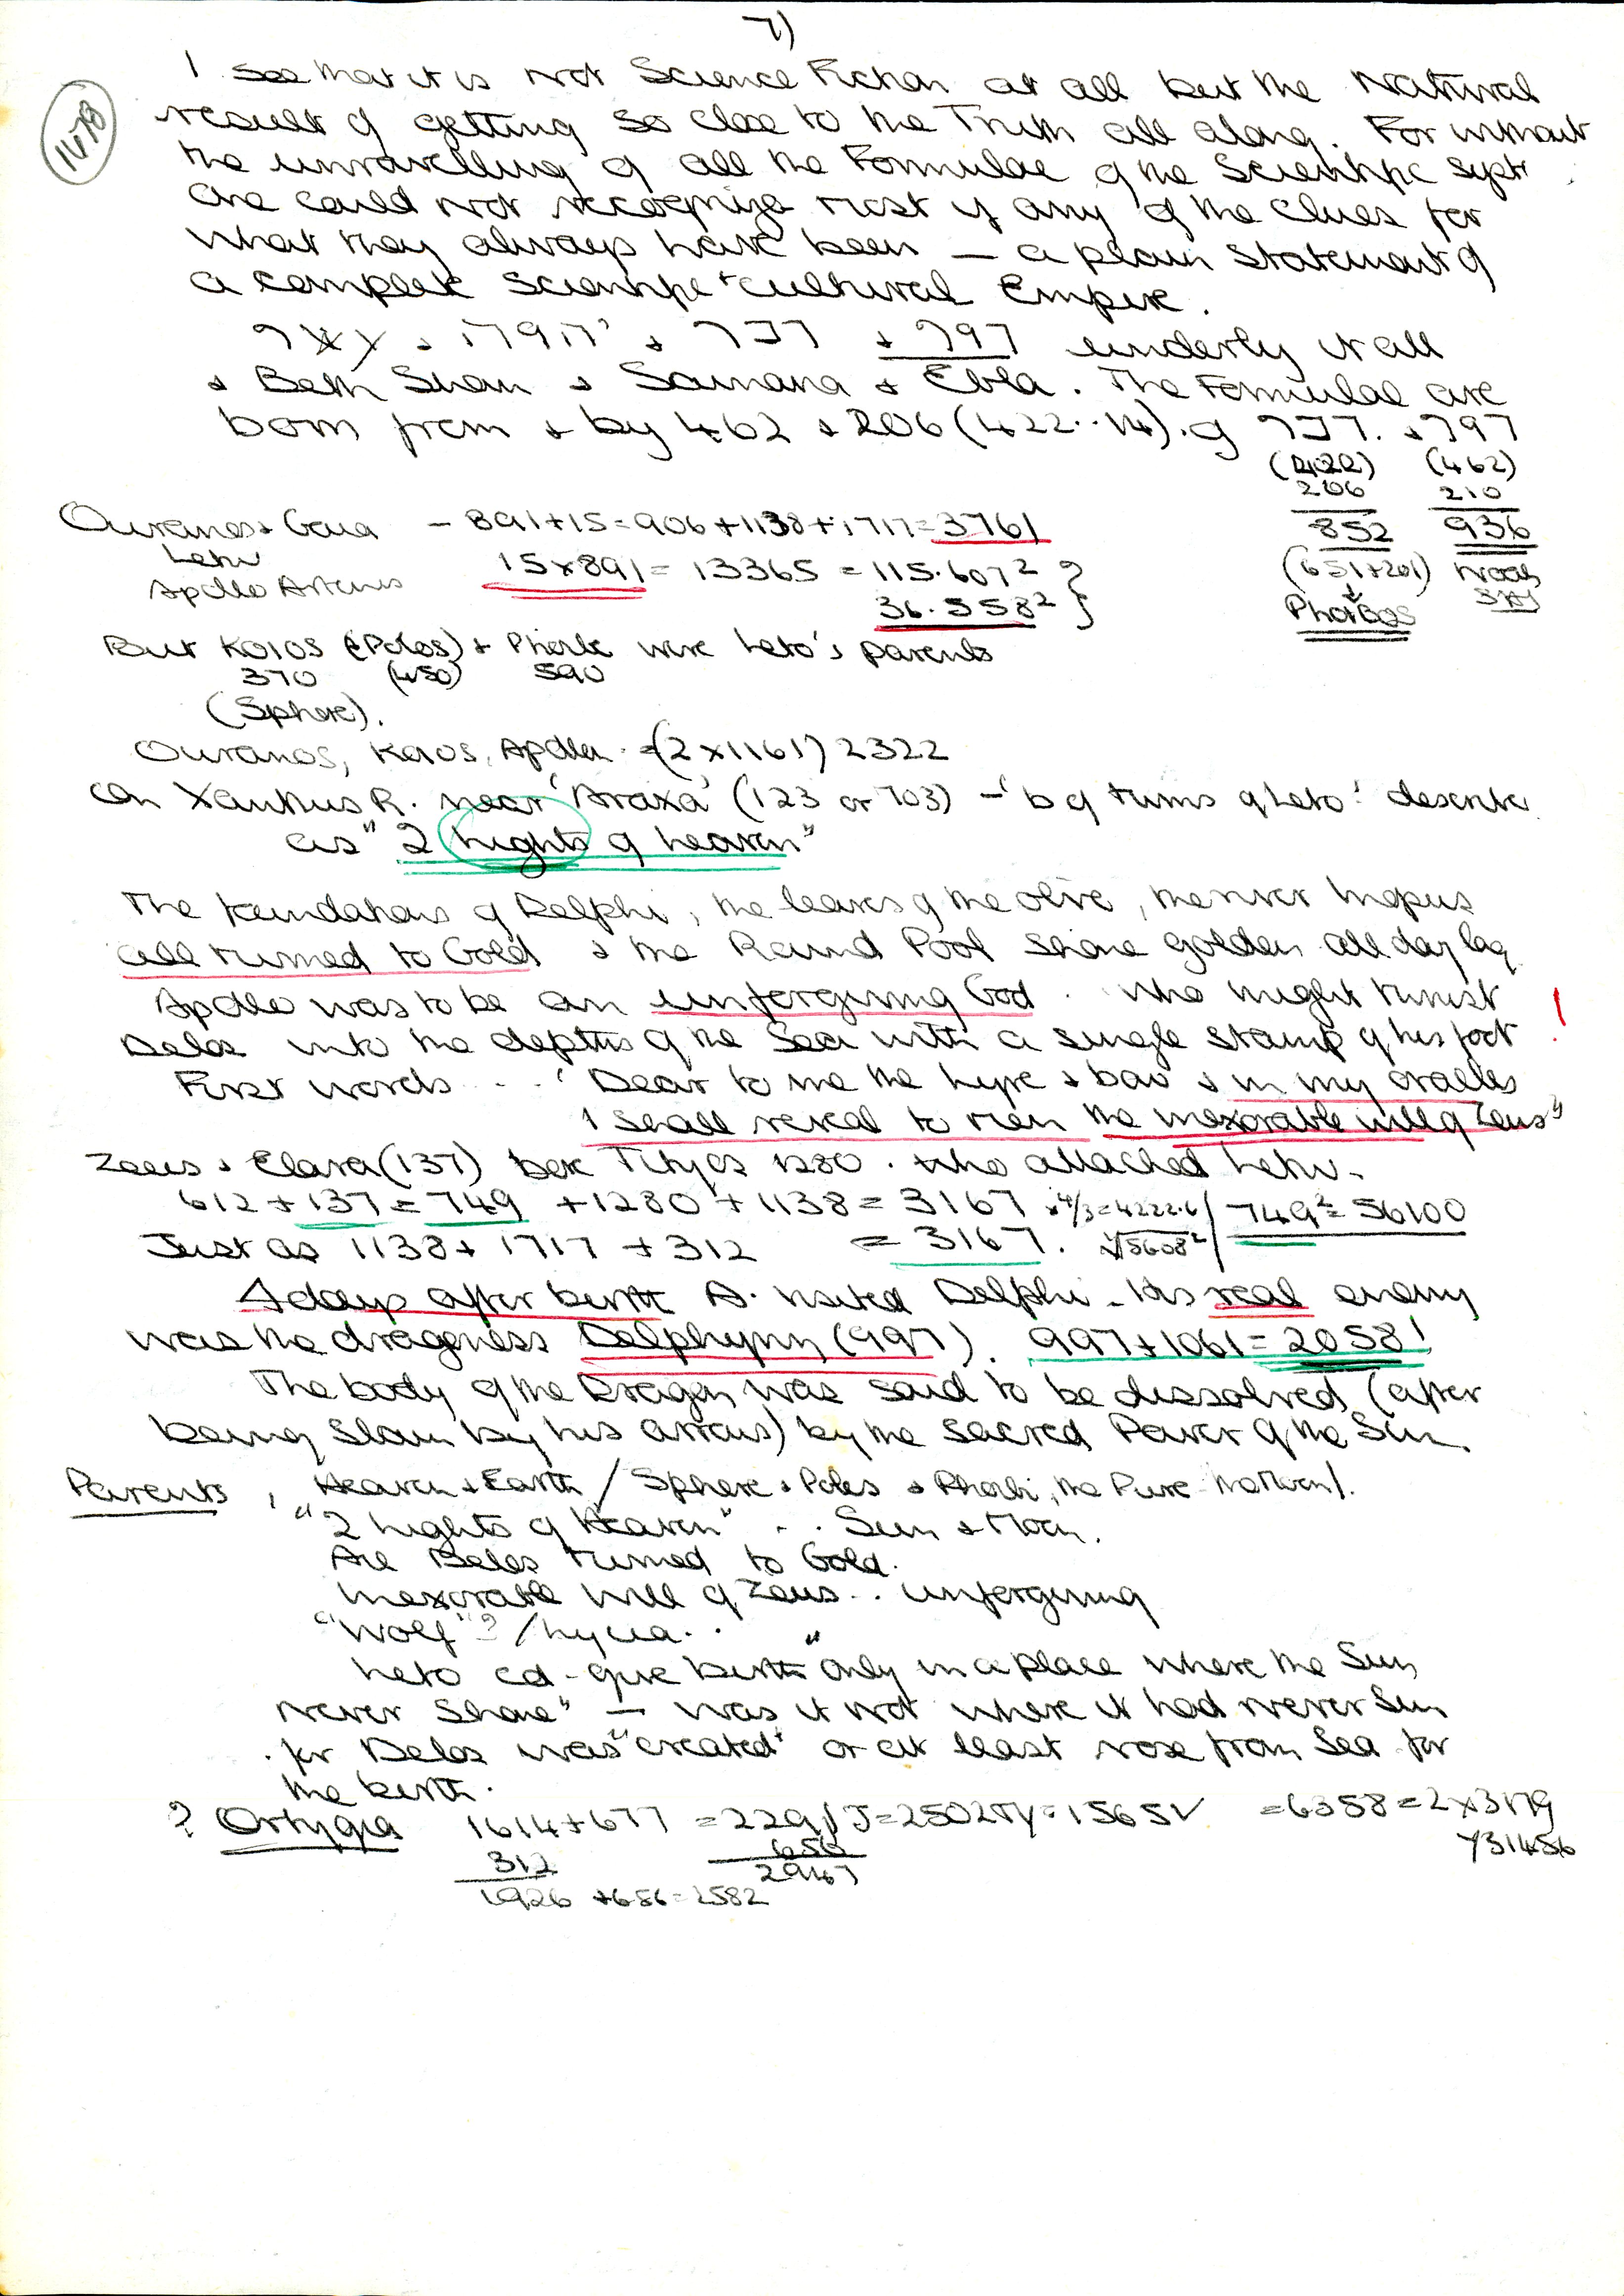 7)
1478
I see that it is not Science Fiction at all but the Natural
result of getting so close to the Truth all along. For without
the unravelling of all the Formulae of the Scientific Syst.
one could not recognize most if any of the clues for
what they always have been — a plain statement of
a complete scientific + cultural Empire.
underly it all
+ Beth Shan + Samaria + Ebla. The Formulae are
born from + by 462 + 206 (422..14). of
(422) (462)
206 210
852 936
(651+201) Noah
Phoibos
Ouranos + Gaia — 891+15=906+1138+1717=3761
Leto
Apollo Artemis 15x891=13365=115.607²
36.558²
But Koios (Polos) + Phoibe were Leto's parents
370 (450) 590
(Sphere).
Ouranos, Koios, Apollon =(2x1161) 2322
On Xanthus R. near 'Araxa' (123 or 703) — 'b of twins of Leto' describe
as "2 lights of heaven"
The foundations of Delphi, the leaves of the olive, the river Inopus
all turned to Gold + the Round Pool shone golden all day long
Apollo was to be an unforgiving God. who might thrust !
Delos into the depths of the Sea with a single stamp of his foot
First words ... 'Dear to me the lyre + bow + in my oracles
I shall reveal to men the inexorable will of Zeus"
Zeus + Elara (137) bore Tityos 1280. who attacked Leto.
612+137=749+1280+1138=3167 x4/3=4222.6 749²=56100
Just as 1138+1717+312 =3167.
4 days after birth A. visited Delphi - his real enemy
was the dragoness Delphyn (997). 997+1061=2058!
The body of the Dragon was said to be dissolved (after
being slain by his arrows) by the sacred Power of the Sun.
Parents, Heaven + Earth / Sphere + Poles + Phoibi, the Pure - the Moon/.
"2 lights of Heaven" .. Sun + Moon.
All Delos turned to Gold.
Inexorable will of Zeus.. unforgiving
"Wolf"? / Lycia..
Leto cd. give birth "only in a place where the Sun
never Shone" — was it not where it had never Sun
. for Delos was "created" or at least rose from Sea for
the birth.
? Ortygia 1614+677 =2291 =6358=2x3179
312 656
1926 +656=2582 2947